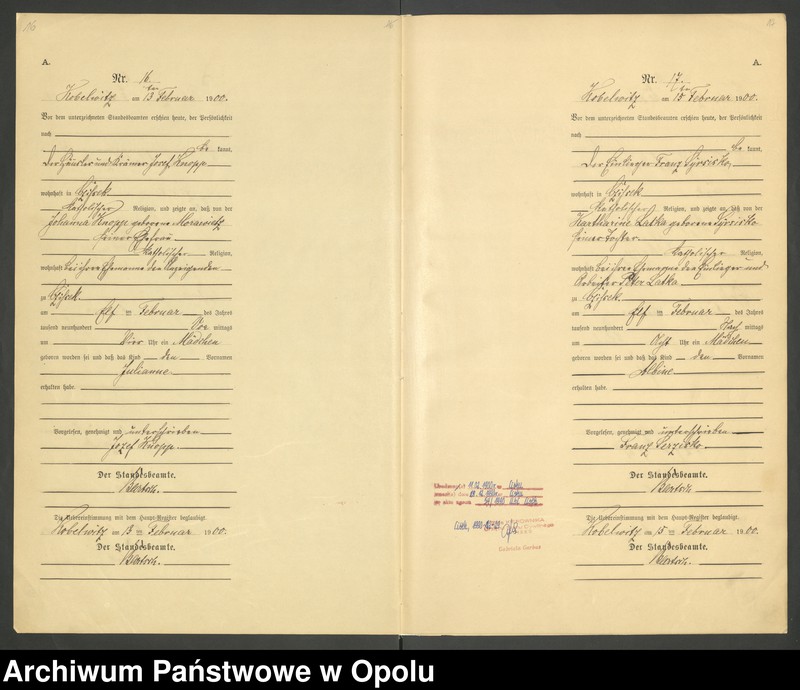 16
A.
Nr. 16
Kobelwitz am 13 ten Februar 1900.
Vor dem unterzeichneten Standesbeamten erschien heute, der Persönlichkeit
nach
be kannt,
der Häusler und Krämer Josef Knopp
wohnhaft in Czissek
katholischer Religion, und zeigte an, daß von der
Johanna Knopp geborene Morawietz
seiner Ehefrau
katholischer Religion,
wohnhaft bei ihrem Ehemanne dem Anzeigenden
zu Czissek
am elf ten Februar des Jahres
tausend neunhundert Vor mittags
um vier Uhr ein Mädchen
geboren worden sei und daß das Kind den Vornamen
Julianne
erhalten habe.
Vorgelesen, genehmigt und unterschrieben
Jozef Knopp
Der Standesbeamte.
Die Uebereinstimmung mit dem Haupt-Register beglaubigt.
Kobelwitz am 13 ten Februar 1900.
Der Standesbeamte.
A.
Nr. 17
Kobelwitz am 15 ten Februar 1900.
Vor dem unterzeichneten Standesbeamten erschien heute, der Persönlichkeit
nach
be kannt,
der Einlieger Franz
wohnhaft in Czissek
katholischer Religion, und zeigte an, daß von der
Katharine Latka geborene
seiner Tochter
katholischer Religion,
wohnhaft bei ihrem Ehemanne dem Einlieger und
Arbeiter Peter Latka
zu Czissek
am elf ten Februar des Jahres
tausend neunhundert Nach mittags
um acht Uhr ein Mädchen
geboren worden sei und daß das Kind den Vornamen
Albine
erhalten habe.
Vorgelesen, genehmigt und unterschrieben
Franz
Der Standesbeamte.
Die Uebereinstimmung mit dem Haupt-Register beglaubigt.
Kobelwitz am 15 ten Februar 1900.
Der Standesbeamte.
Archiwum Państwowe w Opolu